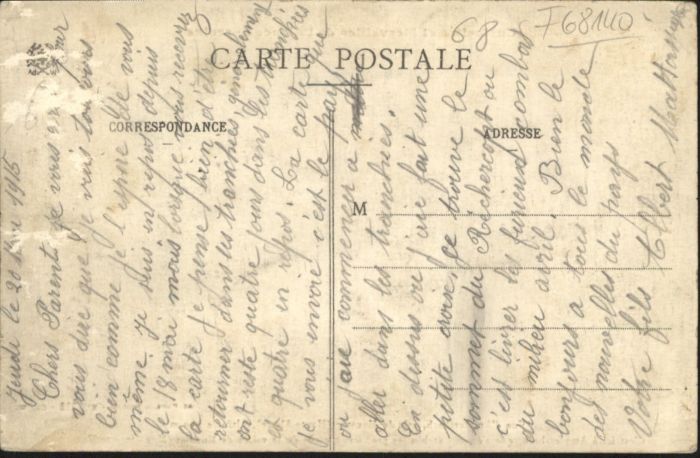 68
F68140
CARTE POSTALE
CORRESPONDANCE
ADRESSE
M
Jeudi le 20 Mai 1915
Chers Parents je vous pour
vous dire que je vais toujours
bien comme je l'espère elle vous
même. Je suis en repos depuis
le 18 mai mais lorsque vous recevrez
la carte je pense bien d'être
retourner dans les tranchées généralement
ont reste quatre jours dans les tranchées
et quatre en repos. La carte que
je vous envoie c'est le pays
ou ont commencer a
aller dans les tranchées.
En dessus ou j'aie fait une
petite croix, se trouve le
sommet du Reichercopt ou
c'est livrer les furieux combat
du milieu avril. Bien le
bonjours a tous le monde
des nouvelles du pays
Votre fils Albert